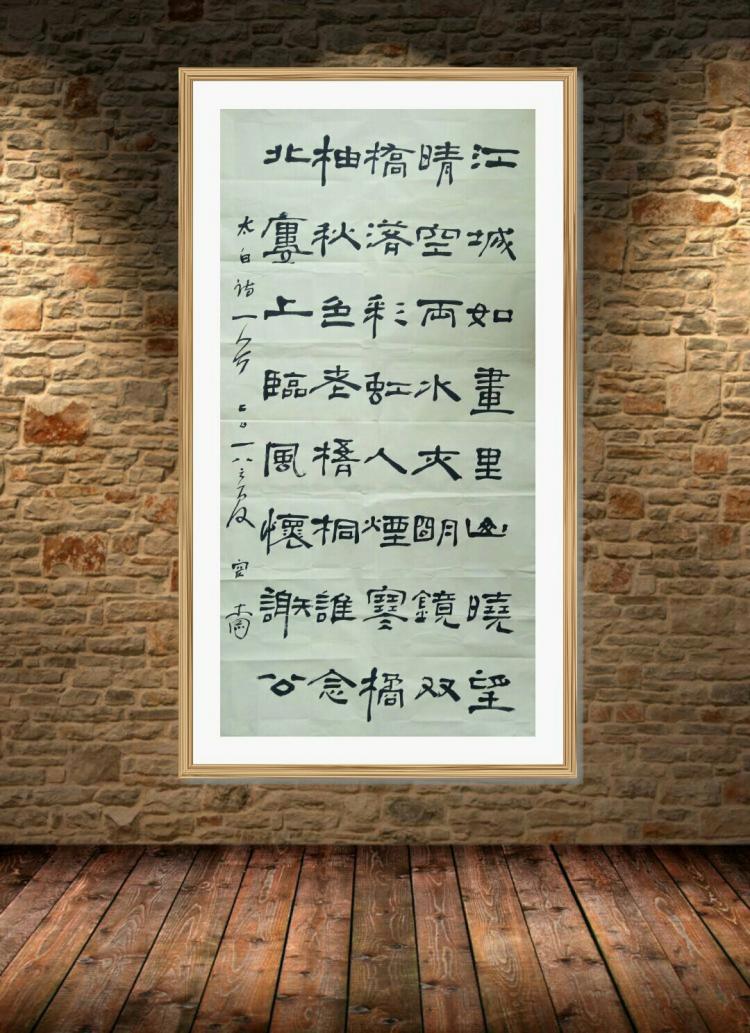 江城如畫里山曉望
晴空両水夾明鏡双
橋落彩虹人煙寒橘
柚秋色老梧桐誰念
北臺上臨風懷謝公
太白詩一首 二〇一八之夏